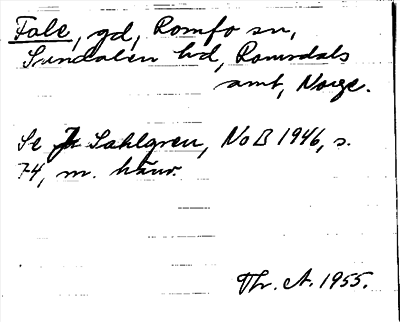 Fale, gd, Romfo sn,
Sundalen hd, Romsdals
amt, Norge.
Se J Sahlgren, NoB 1946, s.
74, m. hänv.
Th. A. 1955.